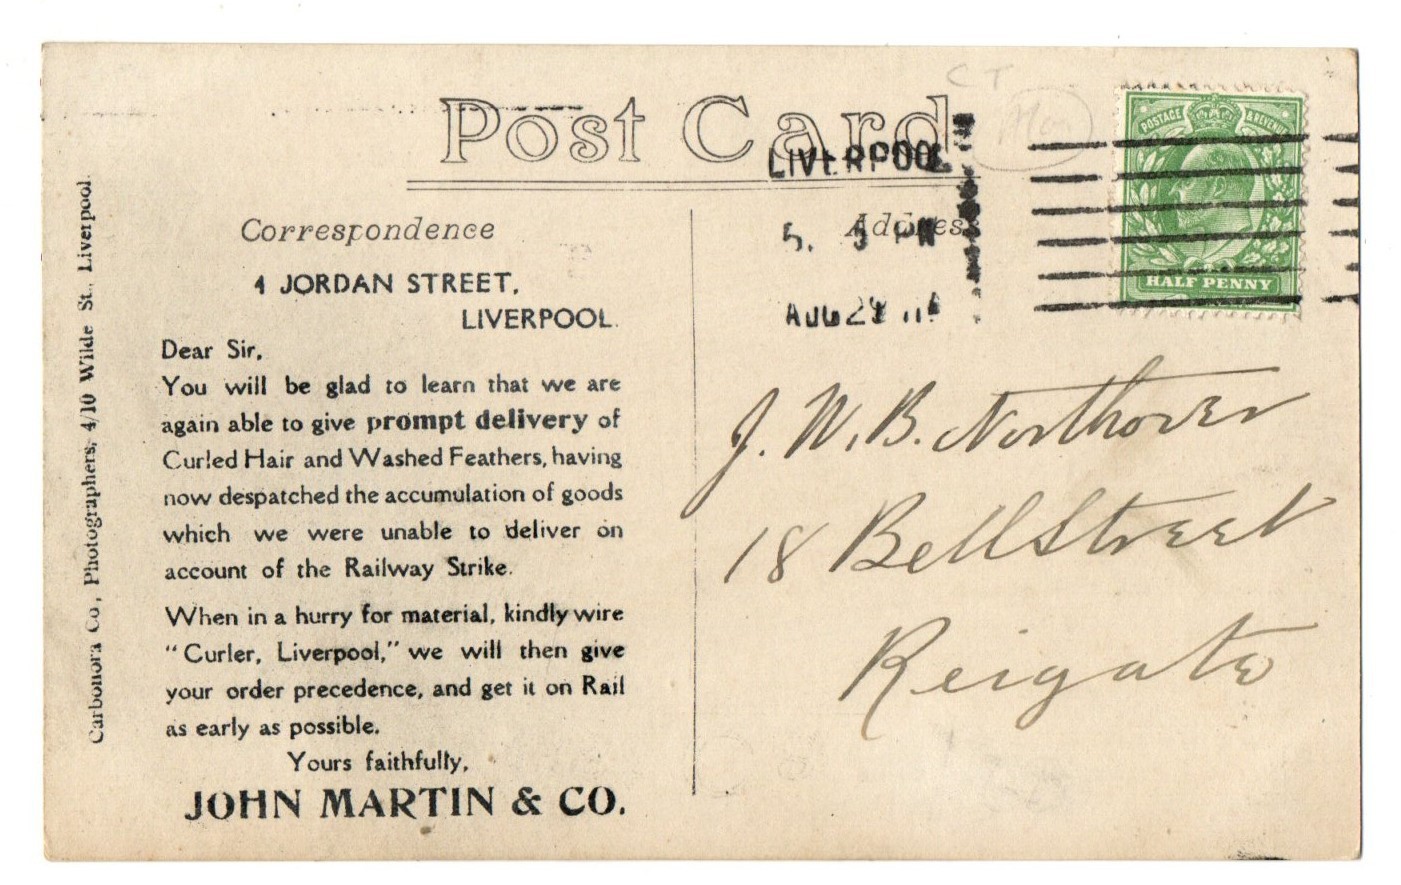 Post Card
CT
LIVERPOOL
5. PM
AUG 29 11
POSTAGE & REVENUE
HALF PENNY
Carbonora Co., Photographers, 4/10 Wilde St., Liverpool.
Correspondence
4 JORDAN STREET,
LIVERPOOL.
Dear Sir,
You will be glad to learn that we are
again able to give prompt delivery of
Curled Hair and Washed Feathers, having
now despatched the accumulation of goods
which we were unable to deliver on
account of the Railway Strike.
When in a hurry for material, kindly wire
"Curler, Liverpool," we will then give
your order precedence, and get it on Rail
as early as possible.
Yours faithfully,
JOHN MARTIN & CO.
Address
J. W. B. Northover
18 Bell Street
Reigate